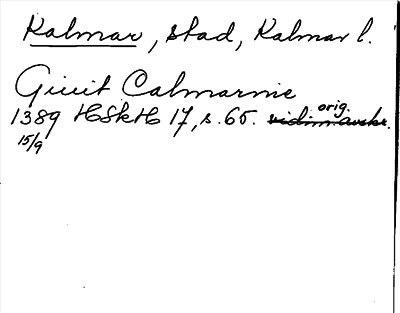 Kalmar, stad, Kalmar l.
Giwit Calmarnie
1389 HSkH 17, s. 65. vidim. avskr. orig.
15/9